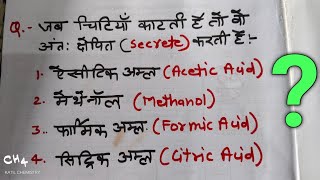 Q.- जब चिटियाँ काटती हैं तो वो
अंतः क्षेपित (secrete) करती हैं:-
1. ऐसीटिक अम्ल (Acetic Acid)
2. मेथेनॉल (Methanol)
3.. फार्मिक अम्ल. (Formic Acid)
4. सिट्रिक अम्ल (Citric Acid)
?
CH4